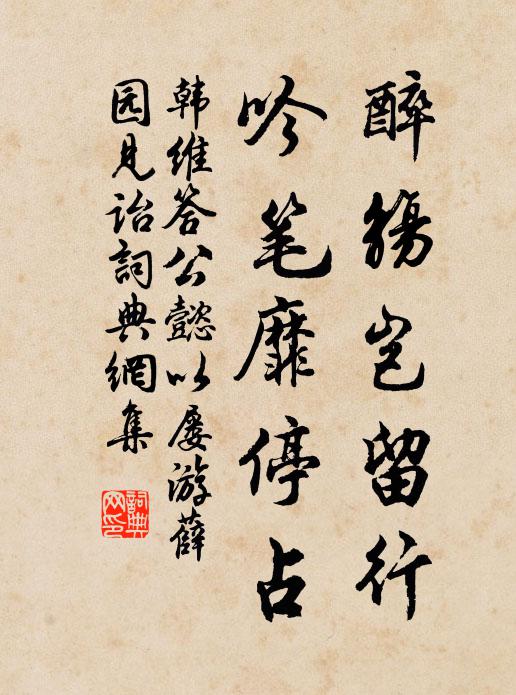 醉觞岂留行
吟笔靡停占
韩维答公懿以屡游薛
园见诒詞典網集
詞典网印